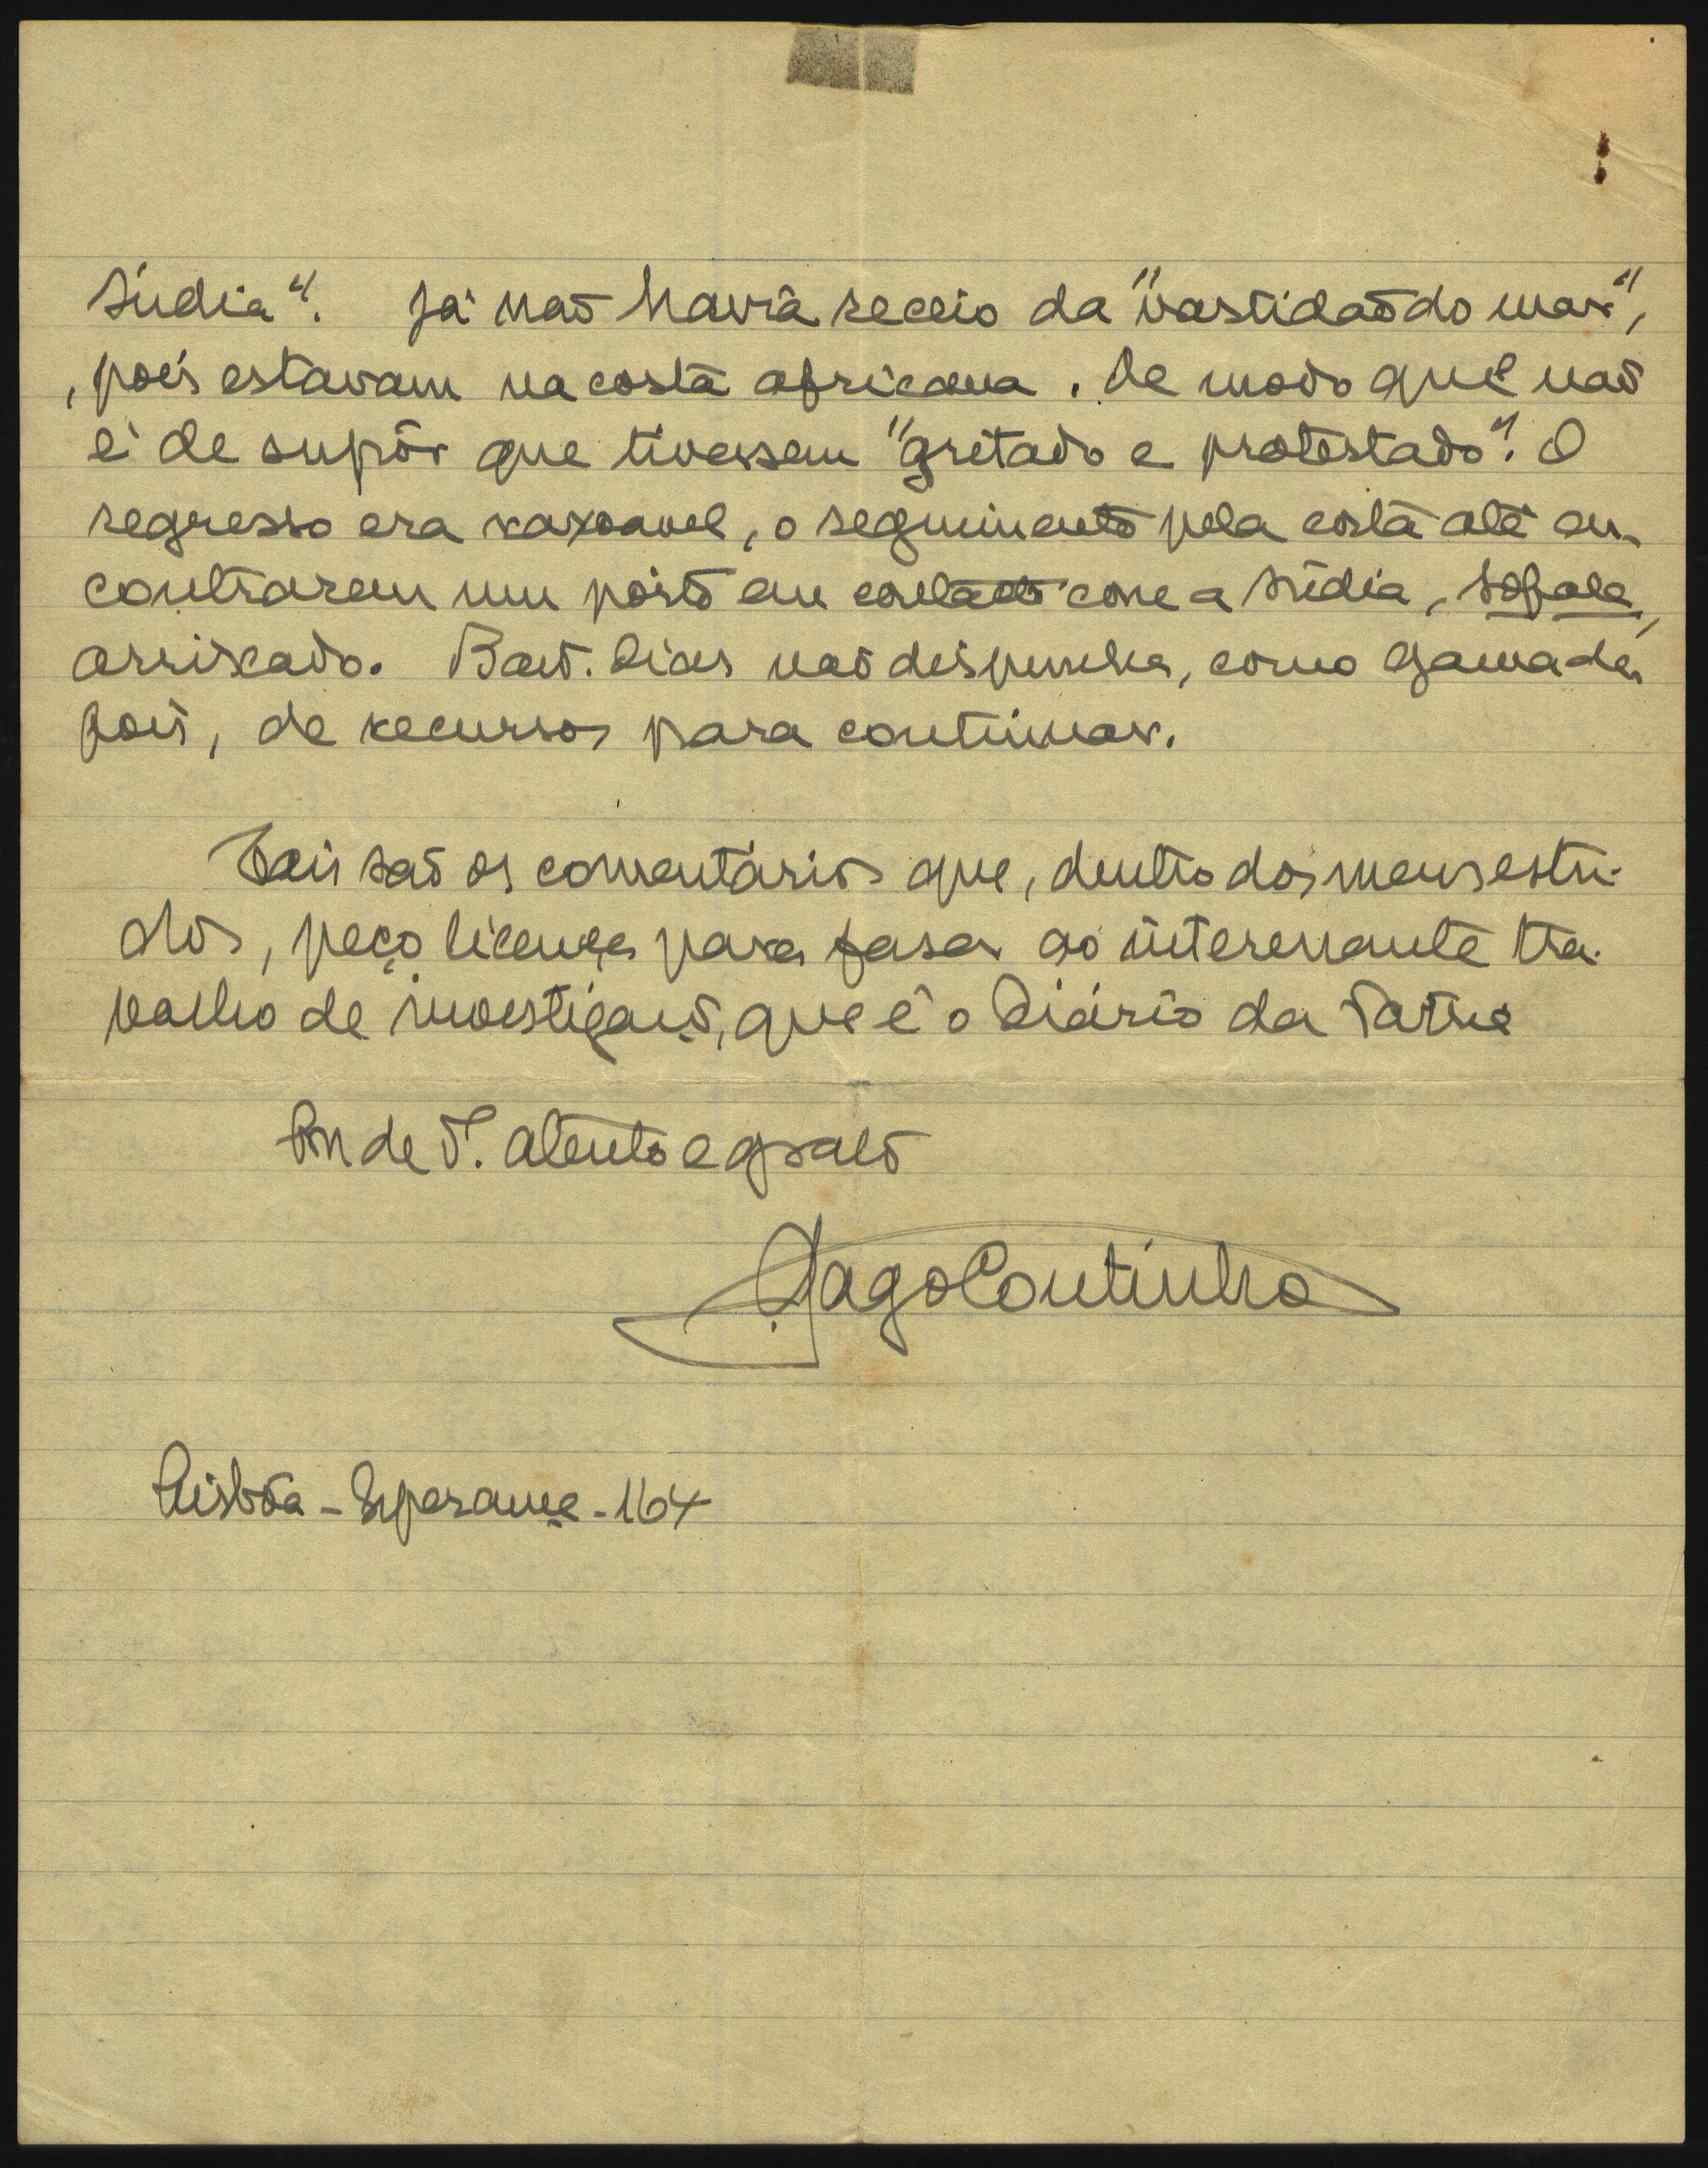 Índia". Já não havia receio da "vastidão do mar",
, pois estavam na costa africana. De modo que não
é de supôr que tivessem "gritado e protestado". O
regresso era razoavel, o seguimento pela costa até en-
contrarem um pôrto em contacto com a Índia, Sofala,
arriscado. Bart. Dias não dispunha, como Gama de-
pois, de recursos para continuar.
Tais são os comentários que, dentro dos meus estu-
dos, peço licença para fazer ao interessante tra-
balho de investigação, que é o Diário da
de V. atento e grato
Gago Coutinho
Lisbôa - Esperança - 164